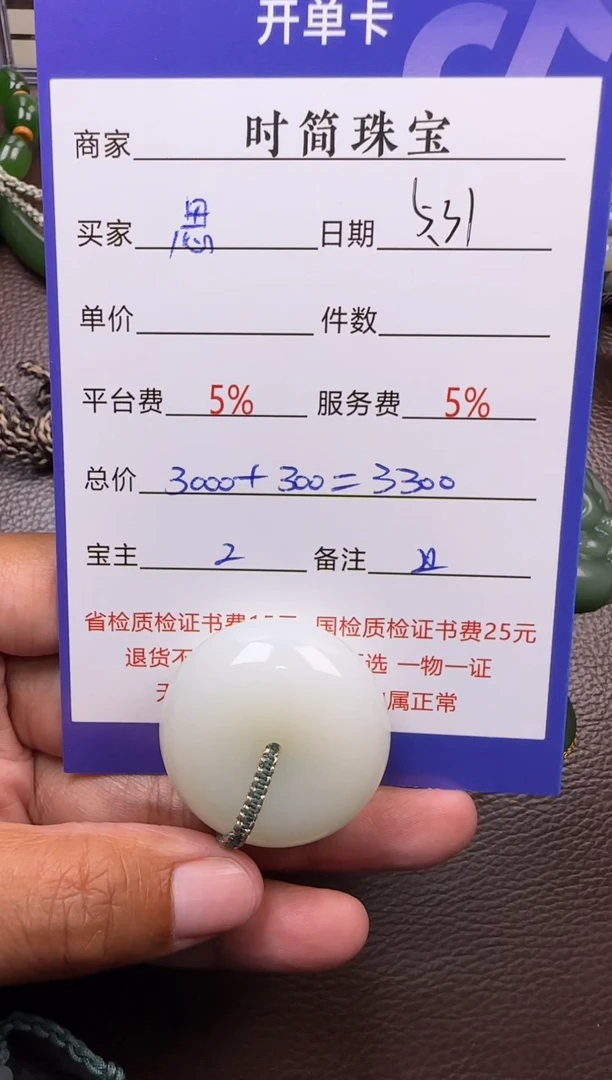 开单卡
商家 时简珠宝
买家 思 日期 5.31
单价 件数
平台费 5% 服务费 5%
总价 3000+300=3300
宝主 2 备注
省检质检证书费15元 国检质检证书费25元
退货不 选 一物一证
属正常